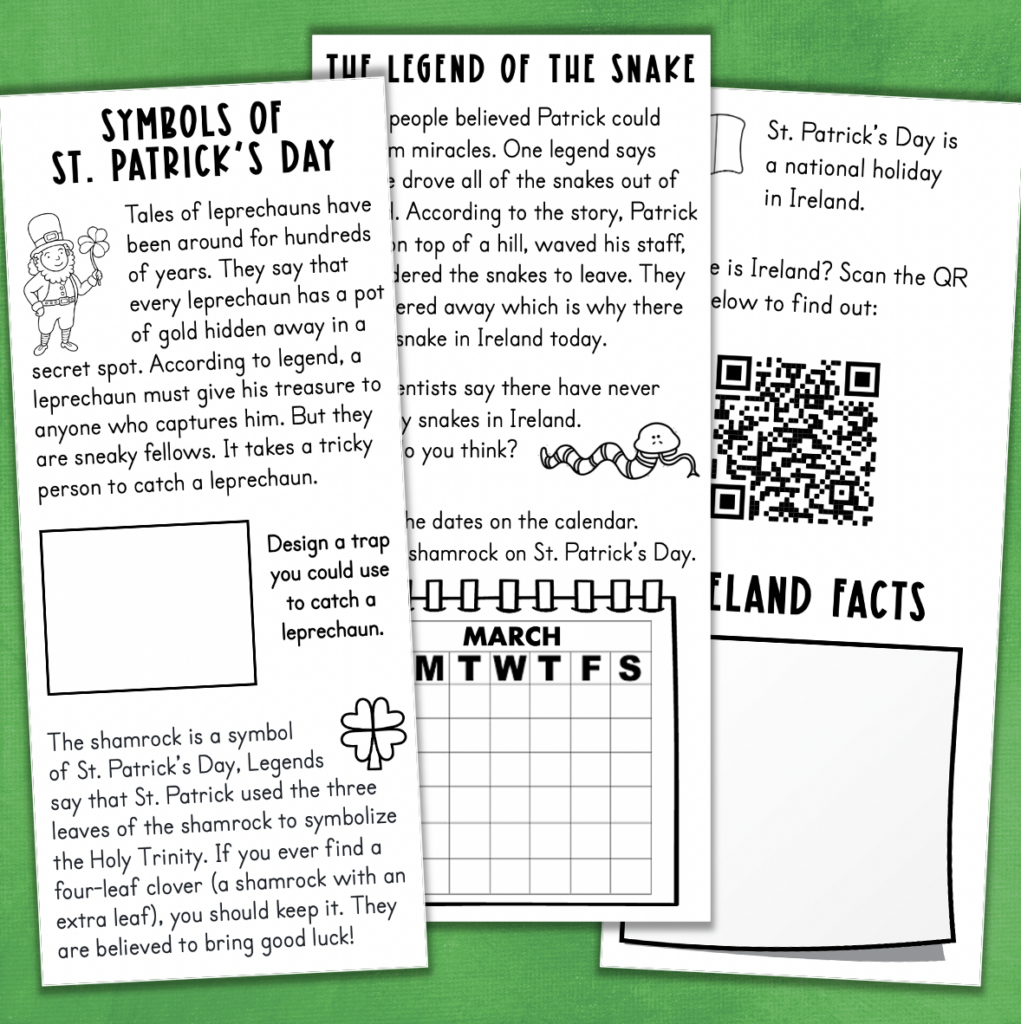 SYMBOLS OF
ST. PATRICK'S DAY
Tales of leprechauns have
been around for hundreds
of years. They say that
every leprechaun has a pot
of gold hidden away in a
secret spot. According to legend, a
leprechaun must give his treasure to
anyone who captures him. But they
are sneaky fellows. It takes a tricky
person to catch a leprechaun.
Design a trap
you could use
to catch a
leprechaun.
The shamrock is a symbol
of St. Patrick's Day, Legends
say that St. Patrick used the three
leaves of the shamrock to symbolize
the Holy Trinity. If you ever find a
four-leaf clover (a shamrock with an
extra leaf), you should keep it. They
are believed to bring good luck!
THE LEGEND OF THE SNAKE
people believed Patrick could
miracles. One legend says
drove all of the snakes out of
According to the story, Patrick
on top of a hill, waved his staff,
the snakes to leave. They
away which is why there
snake in Ireland today.
say there have never
snakes in Ireland.
you think?
the dates on the calendar.
shamrock on St. Patrick's Day.
MARCH
M T W T F S
St. Patrick's Day is
a national holiday
in Ireland.
is Ireland? Scan the QR
below to find out:
FACTS